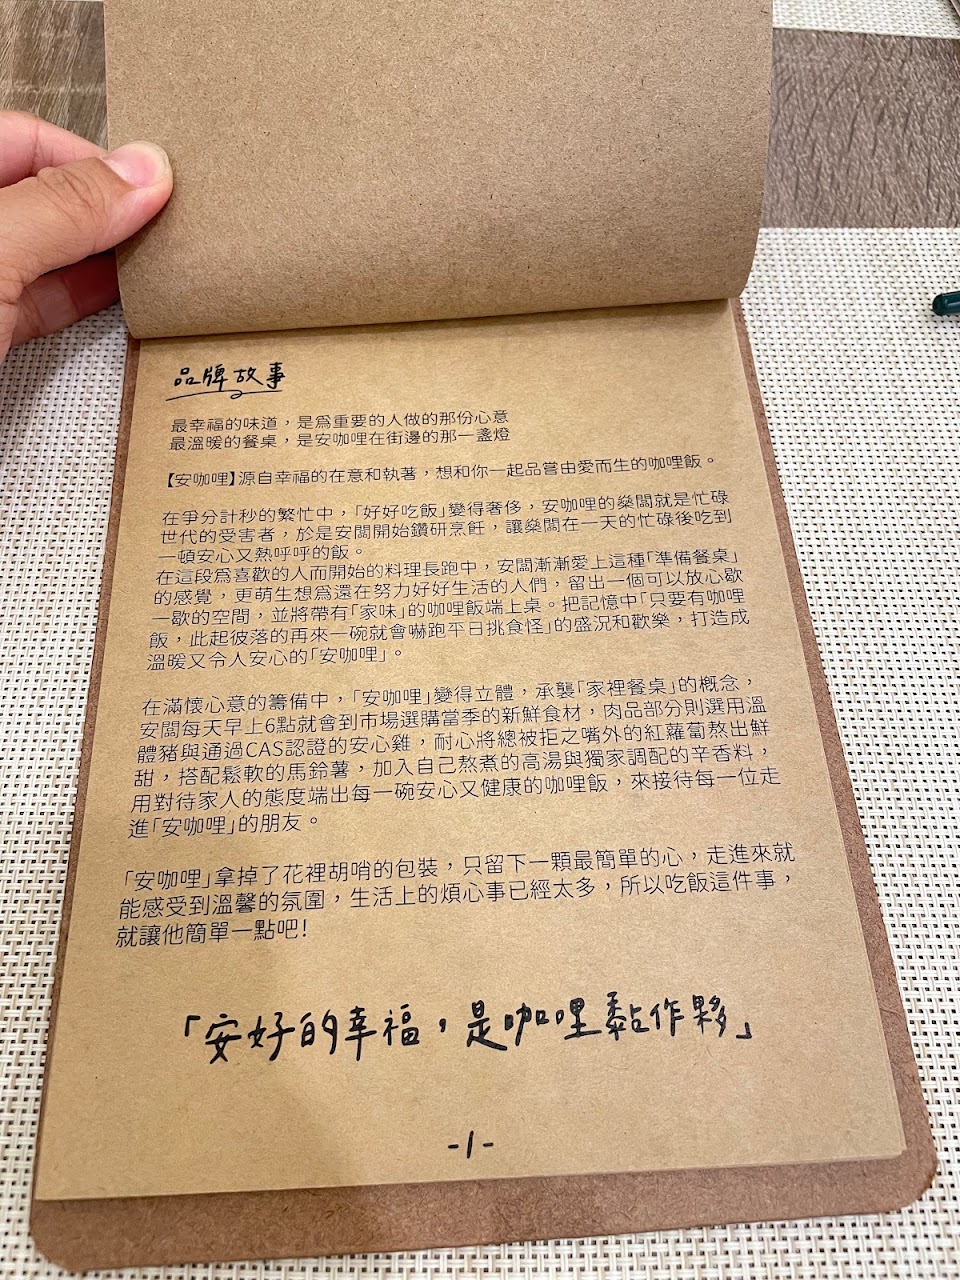 品牌故事
最幸福的味道，是為重要的人做的那份心意
最溫暖的餐桌，是安咖哩在街邊的那一盞燈
【安咖哩】源自幸福的在意和執著，想和你一起品嘗由愛而生的咖哩飯。
在爭分計秒的繁忙中，「好好吃飯」變得奢侈，安咖哩的燊闆就是忙碌
世代的受害者，於是安闆開始鑽研烹飪，讓燊闆在一天的忙碌後吃到
一頓安心又熱呼呼的飯。
在這段為喜歡的人而開始的料理長跑中，安闆漸漸愛上這種「準備餐桌」
的感覺，更萌生想為還在努力好好生活的人們，留出一個可以放心歇
一歇的空間，並將帶有「家味」的咖哩飯端上桌。把記憶中「只要有咖哩
飯，此起彼落的再來一碗就會嚇跑平日挑食怪」的盛況和歡樂，打造成
溫暖又令人安心的「安咖哩」。
在滿懷心意的籌備中，「安咖哩」變得立體，承襲「家裡餐桌」的概念，
安闆每天早上6點就會到市場選購當季的新鮮食材，肉品部分則選用溫
體豬與通過CAS認證的安心雞，耐心將總被拒之嘴外的紅蘿蔔熬出鮮
甜，搭配鬆軟的馬鈴薯，加入自己熬煮的高湯與獨家調配的辛香料，
用對待家人的態度端出每一碗安心又健康的咖哩飯，來接待每一位走
進「安咖哩」的朋友。
「安咖哩」拿掉了花裡胡哨的包裝，只留下一顆最簡單的心，走進來就
能感受到溫馨的氛圍，生活上的煩心事已經太多，所以吃飯這件事，
就讓他簡單一點吧！
「安好的幸福，是咖哩黏作夥」
-1-